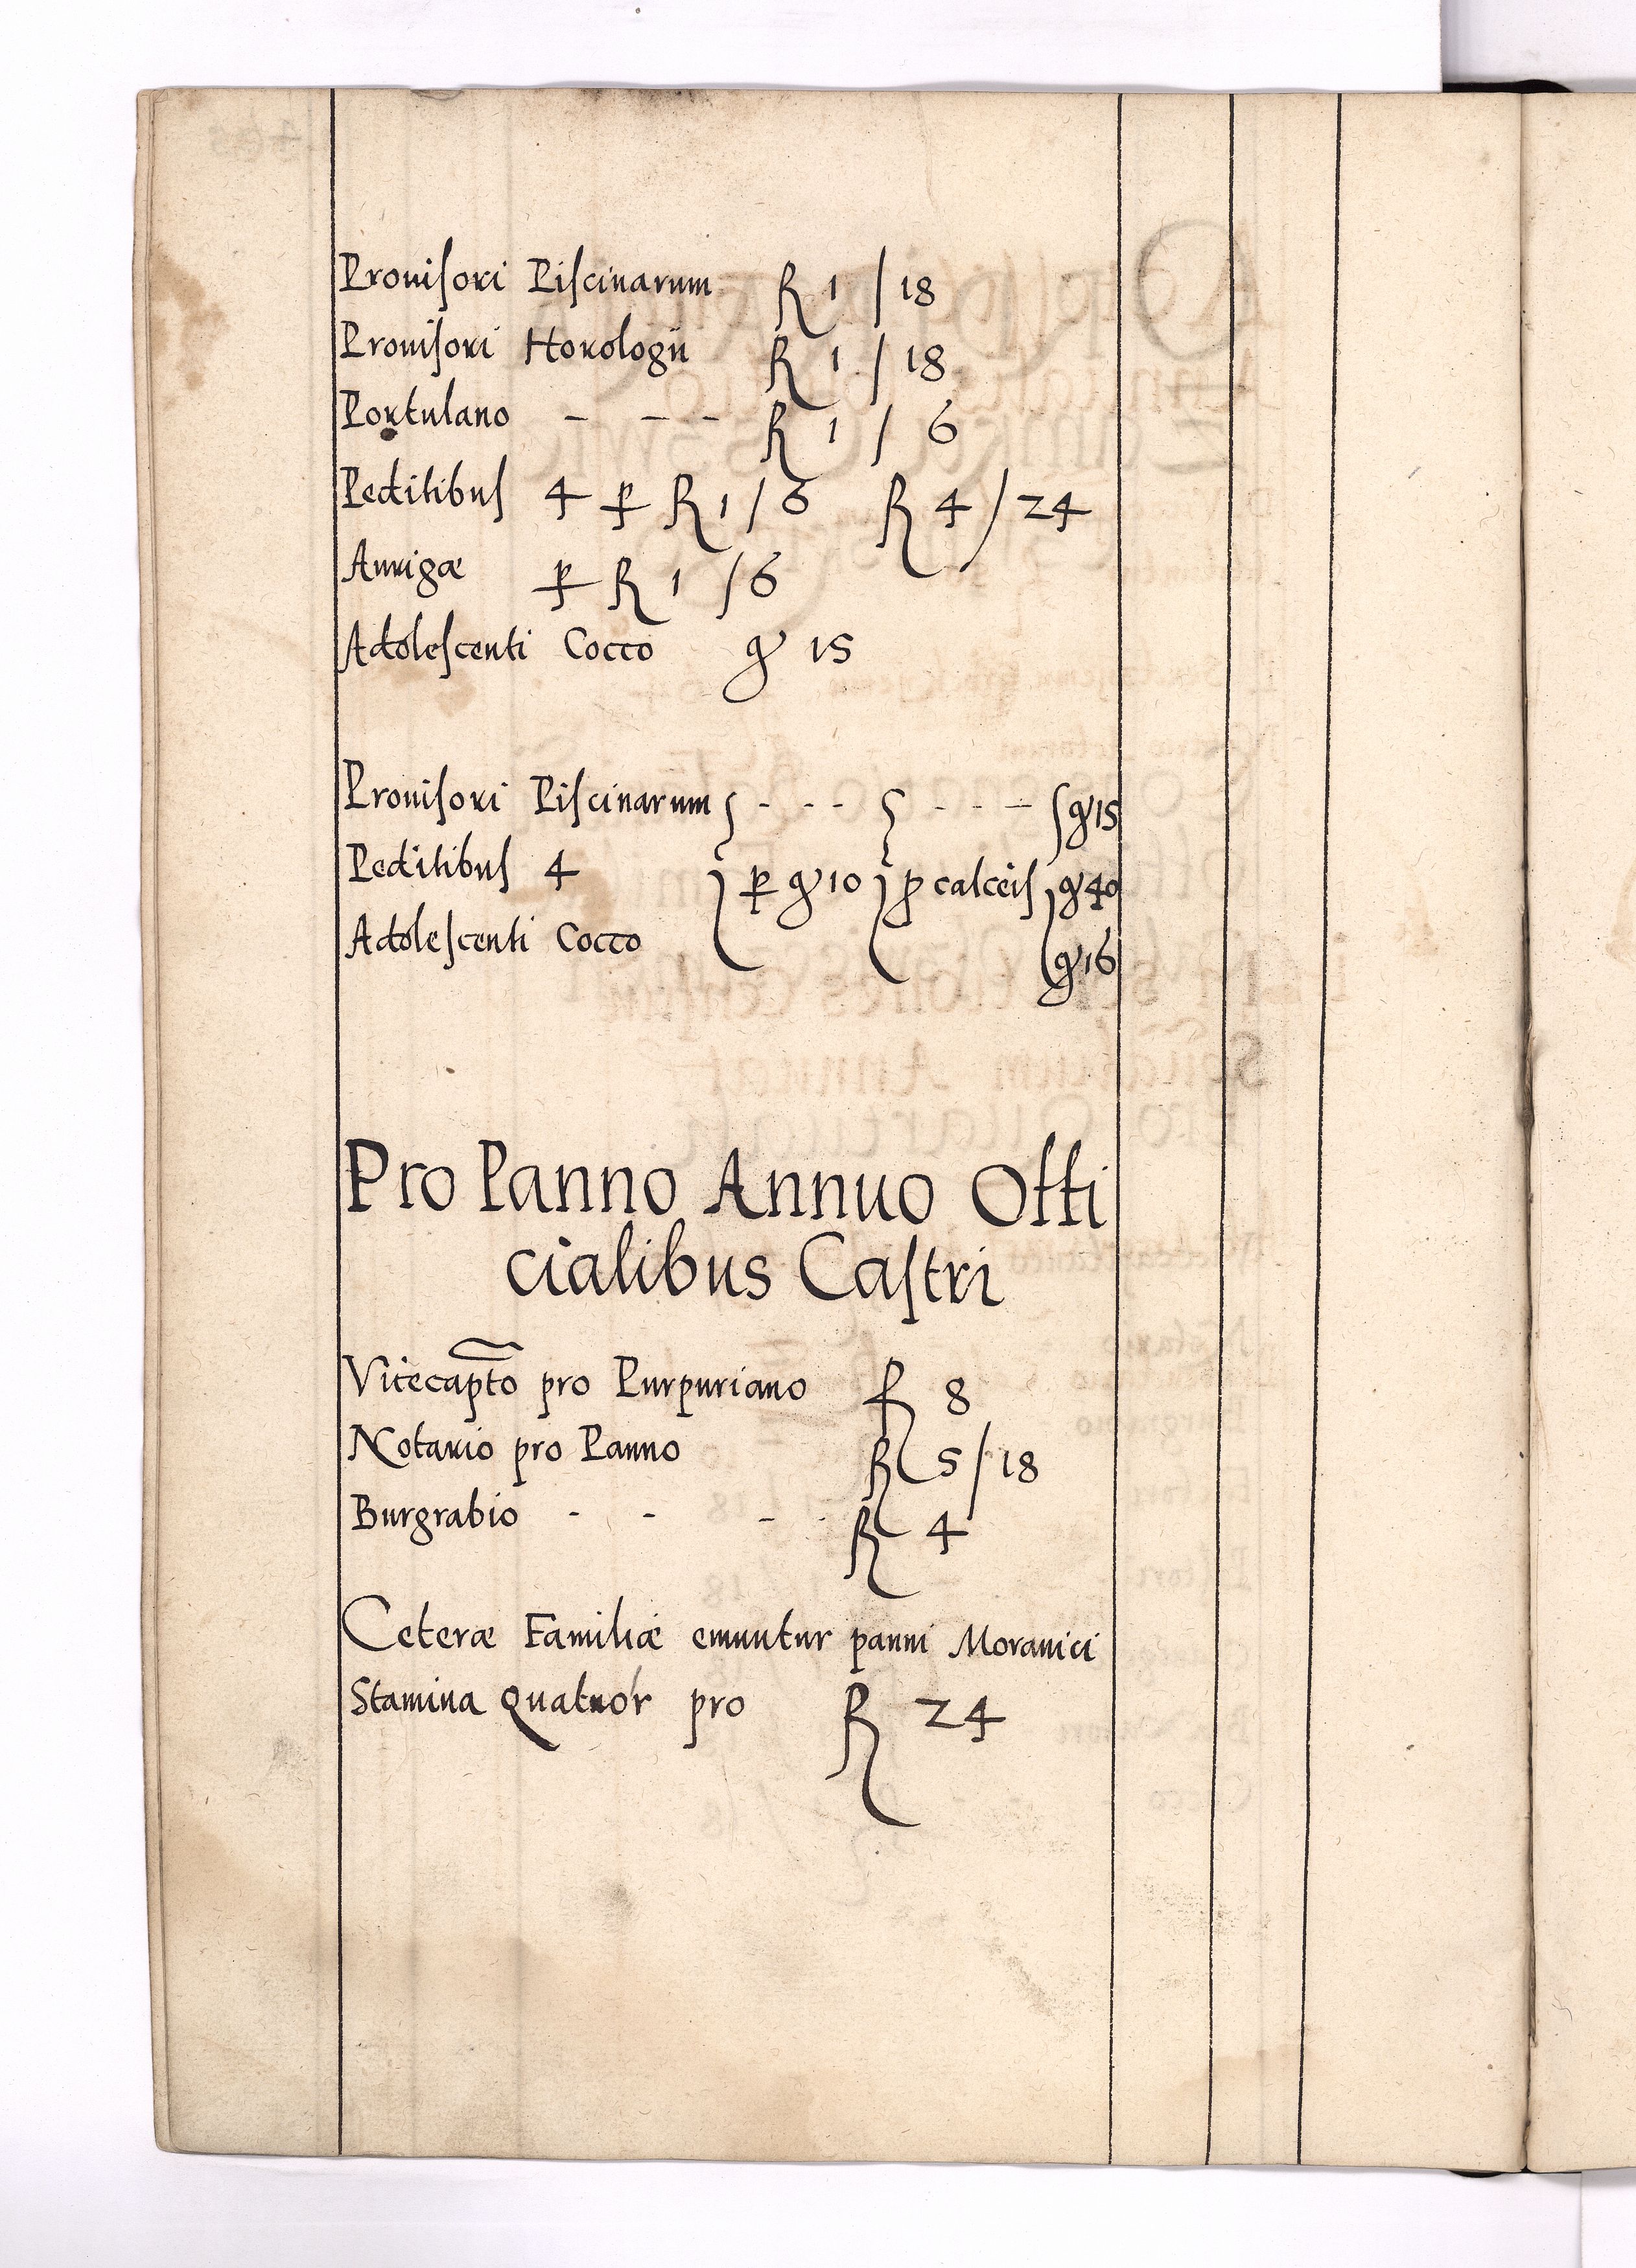 Prouisori Piscinarum R 1 / 18
Prouisori Horologii R 1 / 18
Portulano - - - R 1 / 6
Peditibus 4 p R 1 / 6 R 4 / 24
Aurigæ p R 1 / 6
Adolescenti Cocco gr 15
Prouisori Piscinarum - - - - - - gr 15
Peditibus 4 p gr 10 p calceis gr 40
Adolescenti Cocco gr 16
Pro Panno Annuo Offi
cialibus Castri
Vicecapto pro Purpuriano R 8
Notario pro Panno R 5 / 18
Burgrabio - - - R 4
Ceteræ Familiæ emuntur panni Morauici
Stamina Quatuor pro R 24